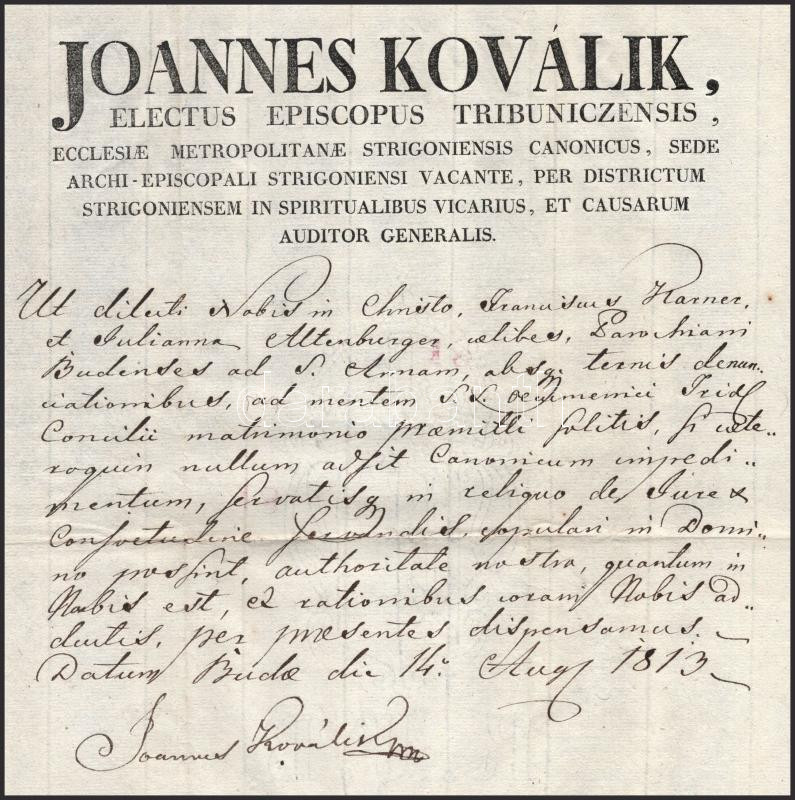 JOANNES KOVÁLIK,
ELECTUS EPISCOPUS TRIBUNICZENSIS,
ECCLESIÆ METROPOLITANÆ STRIGONIENSIS CANONICUS, SEDE
ARCHI-EPISCOPALI STRIGONIENSI VACANTE, PER DISTRICTUM
STRIGONIENSEM IN SPIRITUALIBUS VICARIUS, ET CAUSARUM
AUDITOR GENERALIS.
Ut dilecti Nobis in Christo, Franciscus Karner,
et Julianna Altenburger, cælibes, Parochiani
Budenses ad S. Annam, absq. ternis denun-
ciationibus, ad mentem S.S. Oecumenici Trid.
Concilii matrimonio præmitti solitis, si cæte-
roquin nullum adsit Canonicum impedi-
mentum, servatisq in reliquo de Jure &
Consvetudine servandis, copulari in Domi-
no possint, authoritate nostra, quantum in
Nobis est, ex rationibus coram Nobis ad-
ductis, per præsentes dispensamus.
Datum Budæ die 14. Aug 1813
Joannes Koválik mp